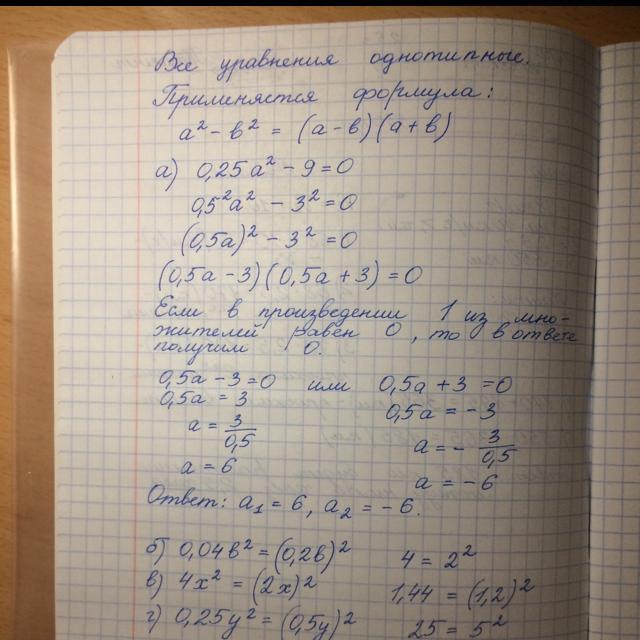 Все уравнения однотипные.
Применяется формула:
a² - b² = (a - b)(a + b)
а) 0,25a² - 9 = 0
0,5²a² - 3² = 0
(0,5a)² - 3² = 0
(0,5a - 3)(0,5a + 3) = 0
Если в произведении 1 из мно-
жителей равен 0, то в ответе
получим 0.
0,5a - 3 = 0 или 0,5a + 3 = 0
0,5a = 3 0,5a = -3
a = 3/0,5 a = - 3/0,5
a = 6 a = -6
Ответ: a₁ = 6, a₂ = -6.
б) 0,04b² = (0,2b)² 4 = 2²
в) 4x² = (2x)² 1,44 = (1,2)²
г) 0,25y² = (0,5y)² 25 = 5²